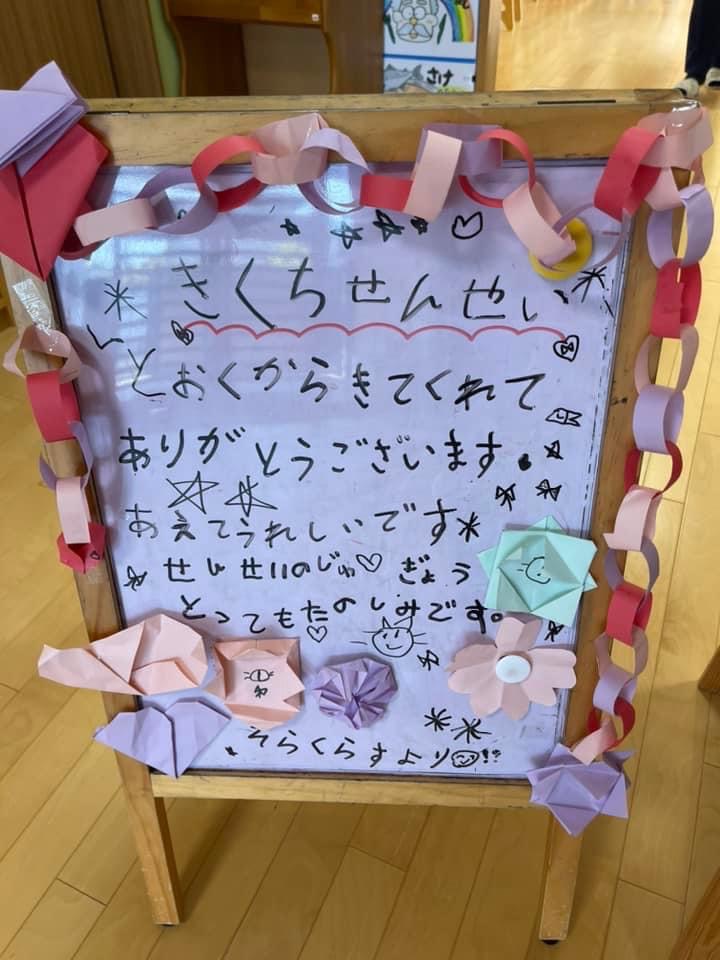 さけ
きくちせんせい
とおくからきてくれて
ありがとうございます。
あえてうれしいです
せんせいのじゅ♡ぎょう
とってもたのしみです。
そらくらすより!!